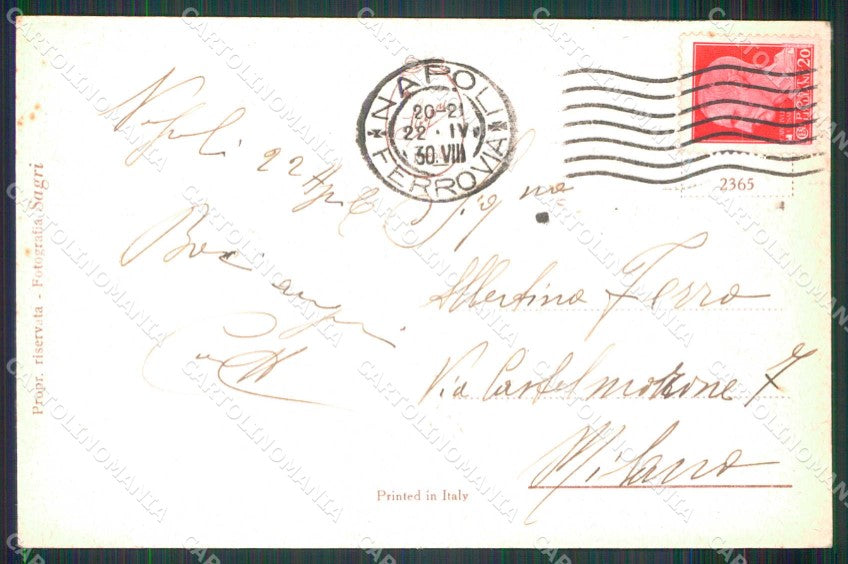 NAPOLI
20-21
22 · IV
30.VIII
FERROVIA
2365
Napoli 22 Aprile
Sig.na
Baci auguri
Albertina Ferro
Via Castelmorrone 7
Milano
Propr. riservata - Fotografia Sagri
Printed in Italy
CARTOLINOMANIA